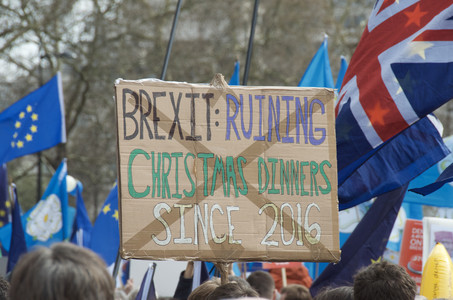 BREXIT: RUINING
CHRISTMAS DINNERS
SINCE 2016